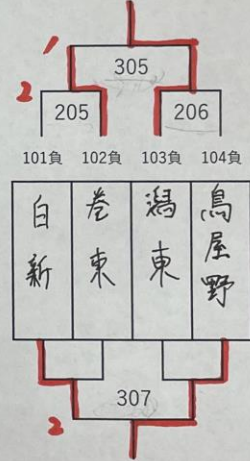 1
305
2
205 206
101負 102負 103負 104負
白新 巻東 潟東 鳥屋野
307
2